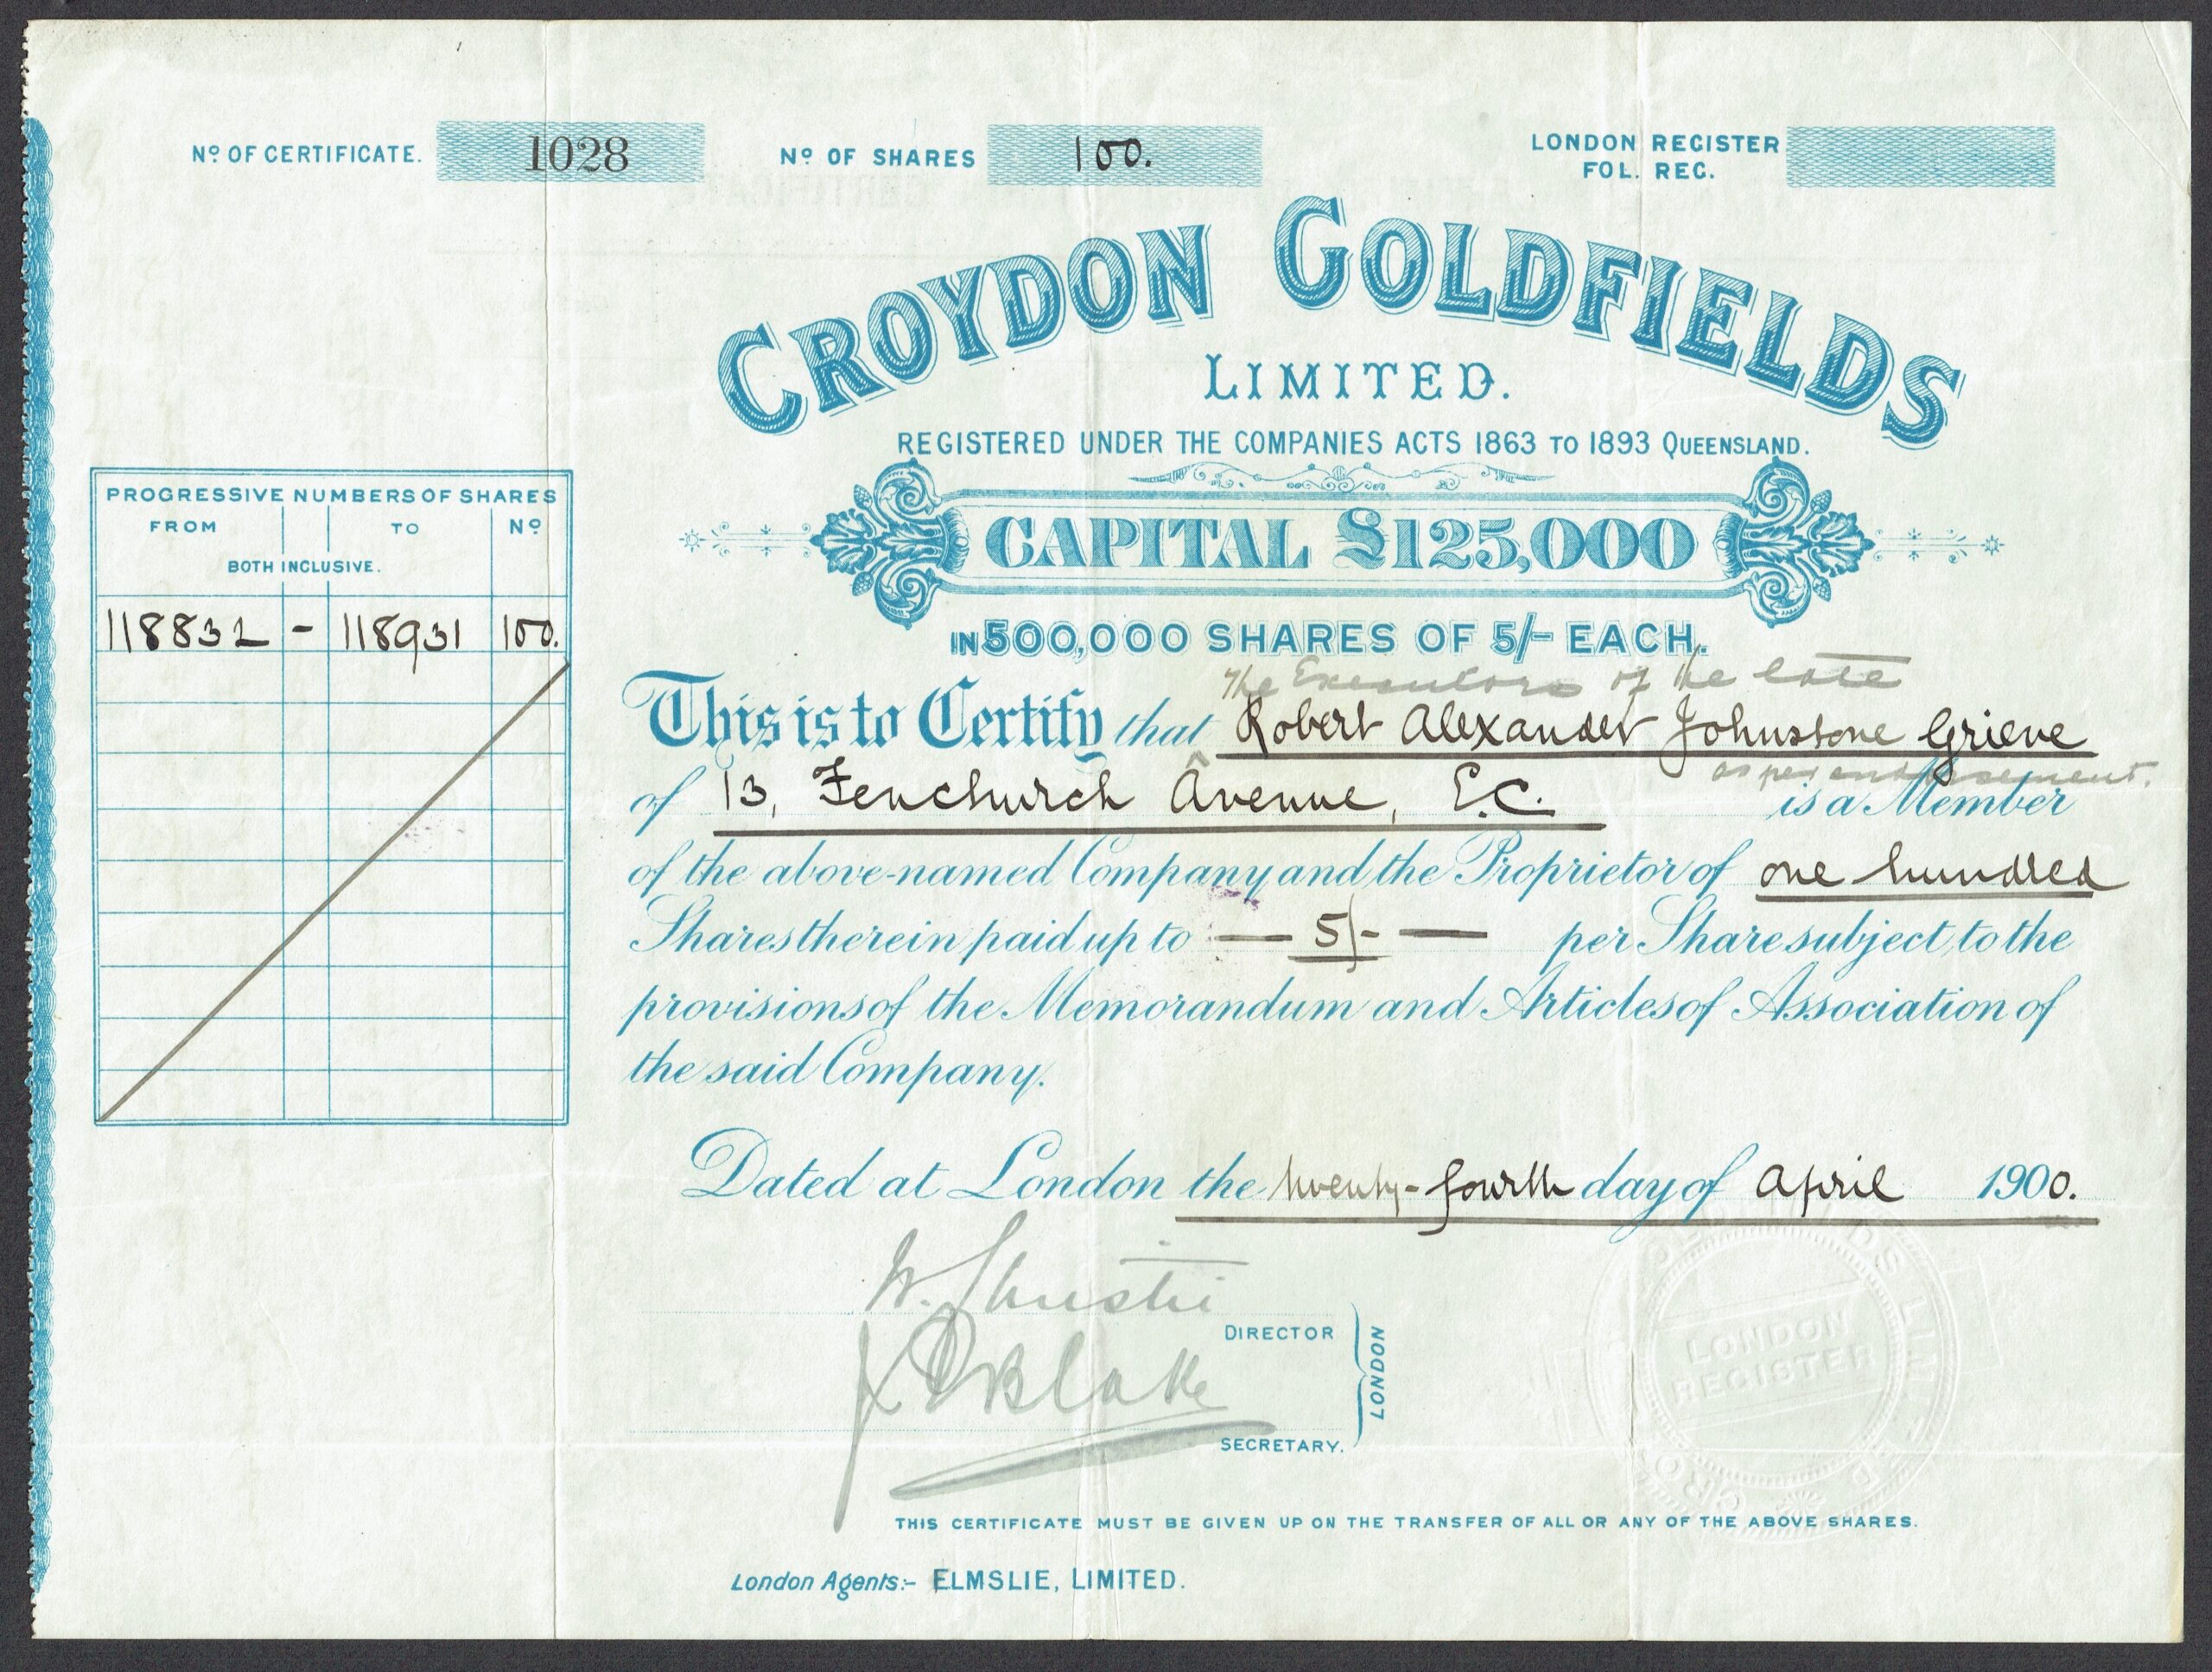 Nº OF CERTIFICATE. 1028
Nº OF SHARES 100.
LONDON REGISTER
FOL. REG.
CROYDON GOLDFIELDS
LIMITED.
REGISTERED UNDER THE COMPANIES ACTS 1863 TO 1893 QUEENSLAND.
CAPITAL £125,000
IN 500,000 SHARES OF 5/- EACH.
PROGRESSIVE NUMBERS OF SHARES
FROM TO Nº
BOTH INCLUSIVE.
118832 - 118931 100.
The Executors of the late
This is to Certify that Robert Alexander Johnstone Grieve
as per endorsement.
of 13, Fenchurch Avenue, E.C. is a Member
of the above-named Company and the Proprietor of one hundred
Shares therein paid up to — 5/- — per Share subject to the
provisions of the Memorandum and Articles of Association of
the said Company.
Dated at London the twenty-fourth day of April 1900.
W. Christie
DIRECTOR
Blake
SECRETARY.
LONDON
CROYDON GOLDFIELDS LIMITED
LONDON
REGISTER
THIS CERTIFICATE MUST BE GIVEN UP ON THE TRANSFER OF ALL OR ANY OF THE ABOVE SHARES.
London Agents:- ELMSLIE, LIMITED.